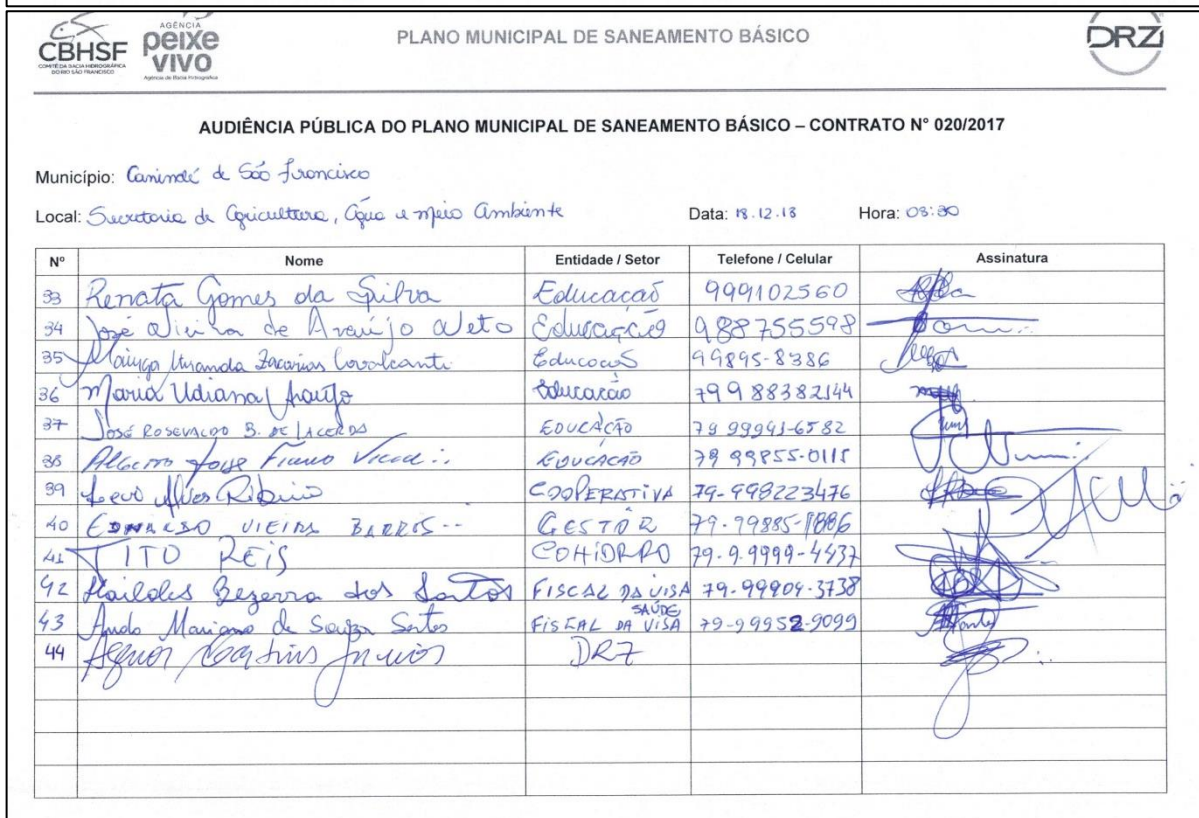 AGÊNCIA
CBHSF peixe vivo PLANO MUNICIPAL DE SANEAMENTO BÁSICO DRZ
COMITÊ DA BACIA HIDROGRÁFICA DO RIO SÃO FRANCISCO Agência de Bacia Hidrográfica
AUDIÊNCIA PÚBLICA DO PLANO MUNICIPAL DE SANEAMENTO BÁSICO – CONTRATO N° 020/2017
Município: Canindé de São Francisco
Local: Secretaria de Agricultura, Água e Meio Ambiente Data: 18.12.18 Hora: 08:30
Nº Nome Entidade / Setor Telefone / Celular Assinatura
33 Renata Gomes da Silva Educação 999102560
34 José Vieira de Araújo Neto Educação 988755598
35 Zacarias Cavalcanti Educação 99895-8386
36 Maria Udiana Araujo Educação 79 9 88382144
37 JOSÉ ROSEVALDO B. DE LACERDA EDUCAÇÃO 79 99991-6582
38 Alberto José EDUCAÇÃO 79 99855-0115
39 Alves Ribeiro COOPERATIVA 79-998223476
40 VIEIRA BARROS GESTOR 79-99885-1886
41 TITO REIS COHIDRO 79-9.9999-4437
42 Bezerra dos Santos FISCAL DA VISA 79-99904-3738
SAÚDE
43 Mariano de Souza Santos FISCAL DA VISA 79-99952-9099
44 Agenor Martins Junior DRZ